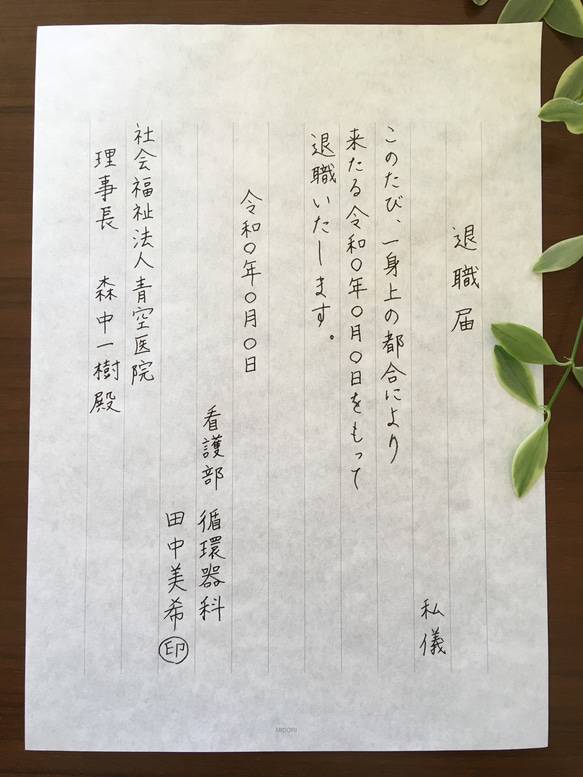 退職届
私儀
このたび、一身上の都合により
来たる令和〇年〇月〇日をもって
退職いたします。
令和〇年〇月〇日
看護部 循環器科
田中美希 印
社会福祉法人青空医院
理事長 森中一樹殿
MIDORI